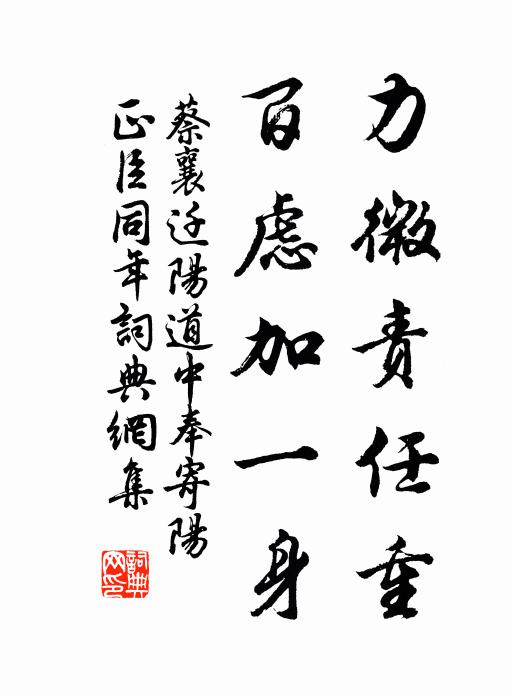 力微責任重
百慮加一身
蔡襄迁陽道中奉寄陽
正臣同年詞典網集
詞典网印